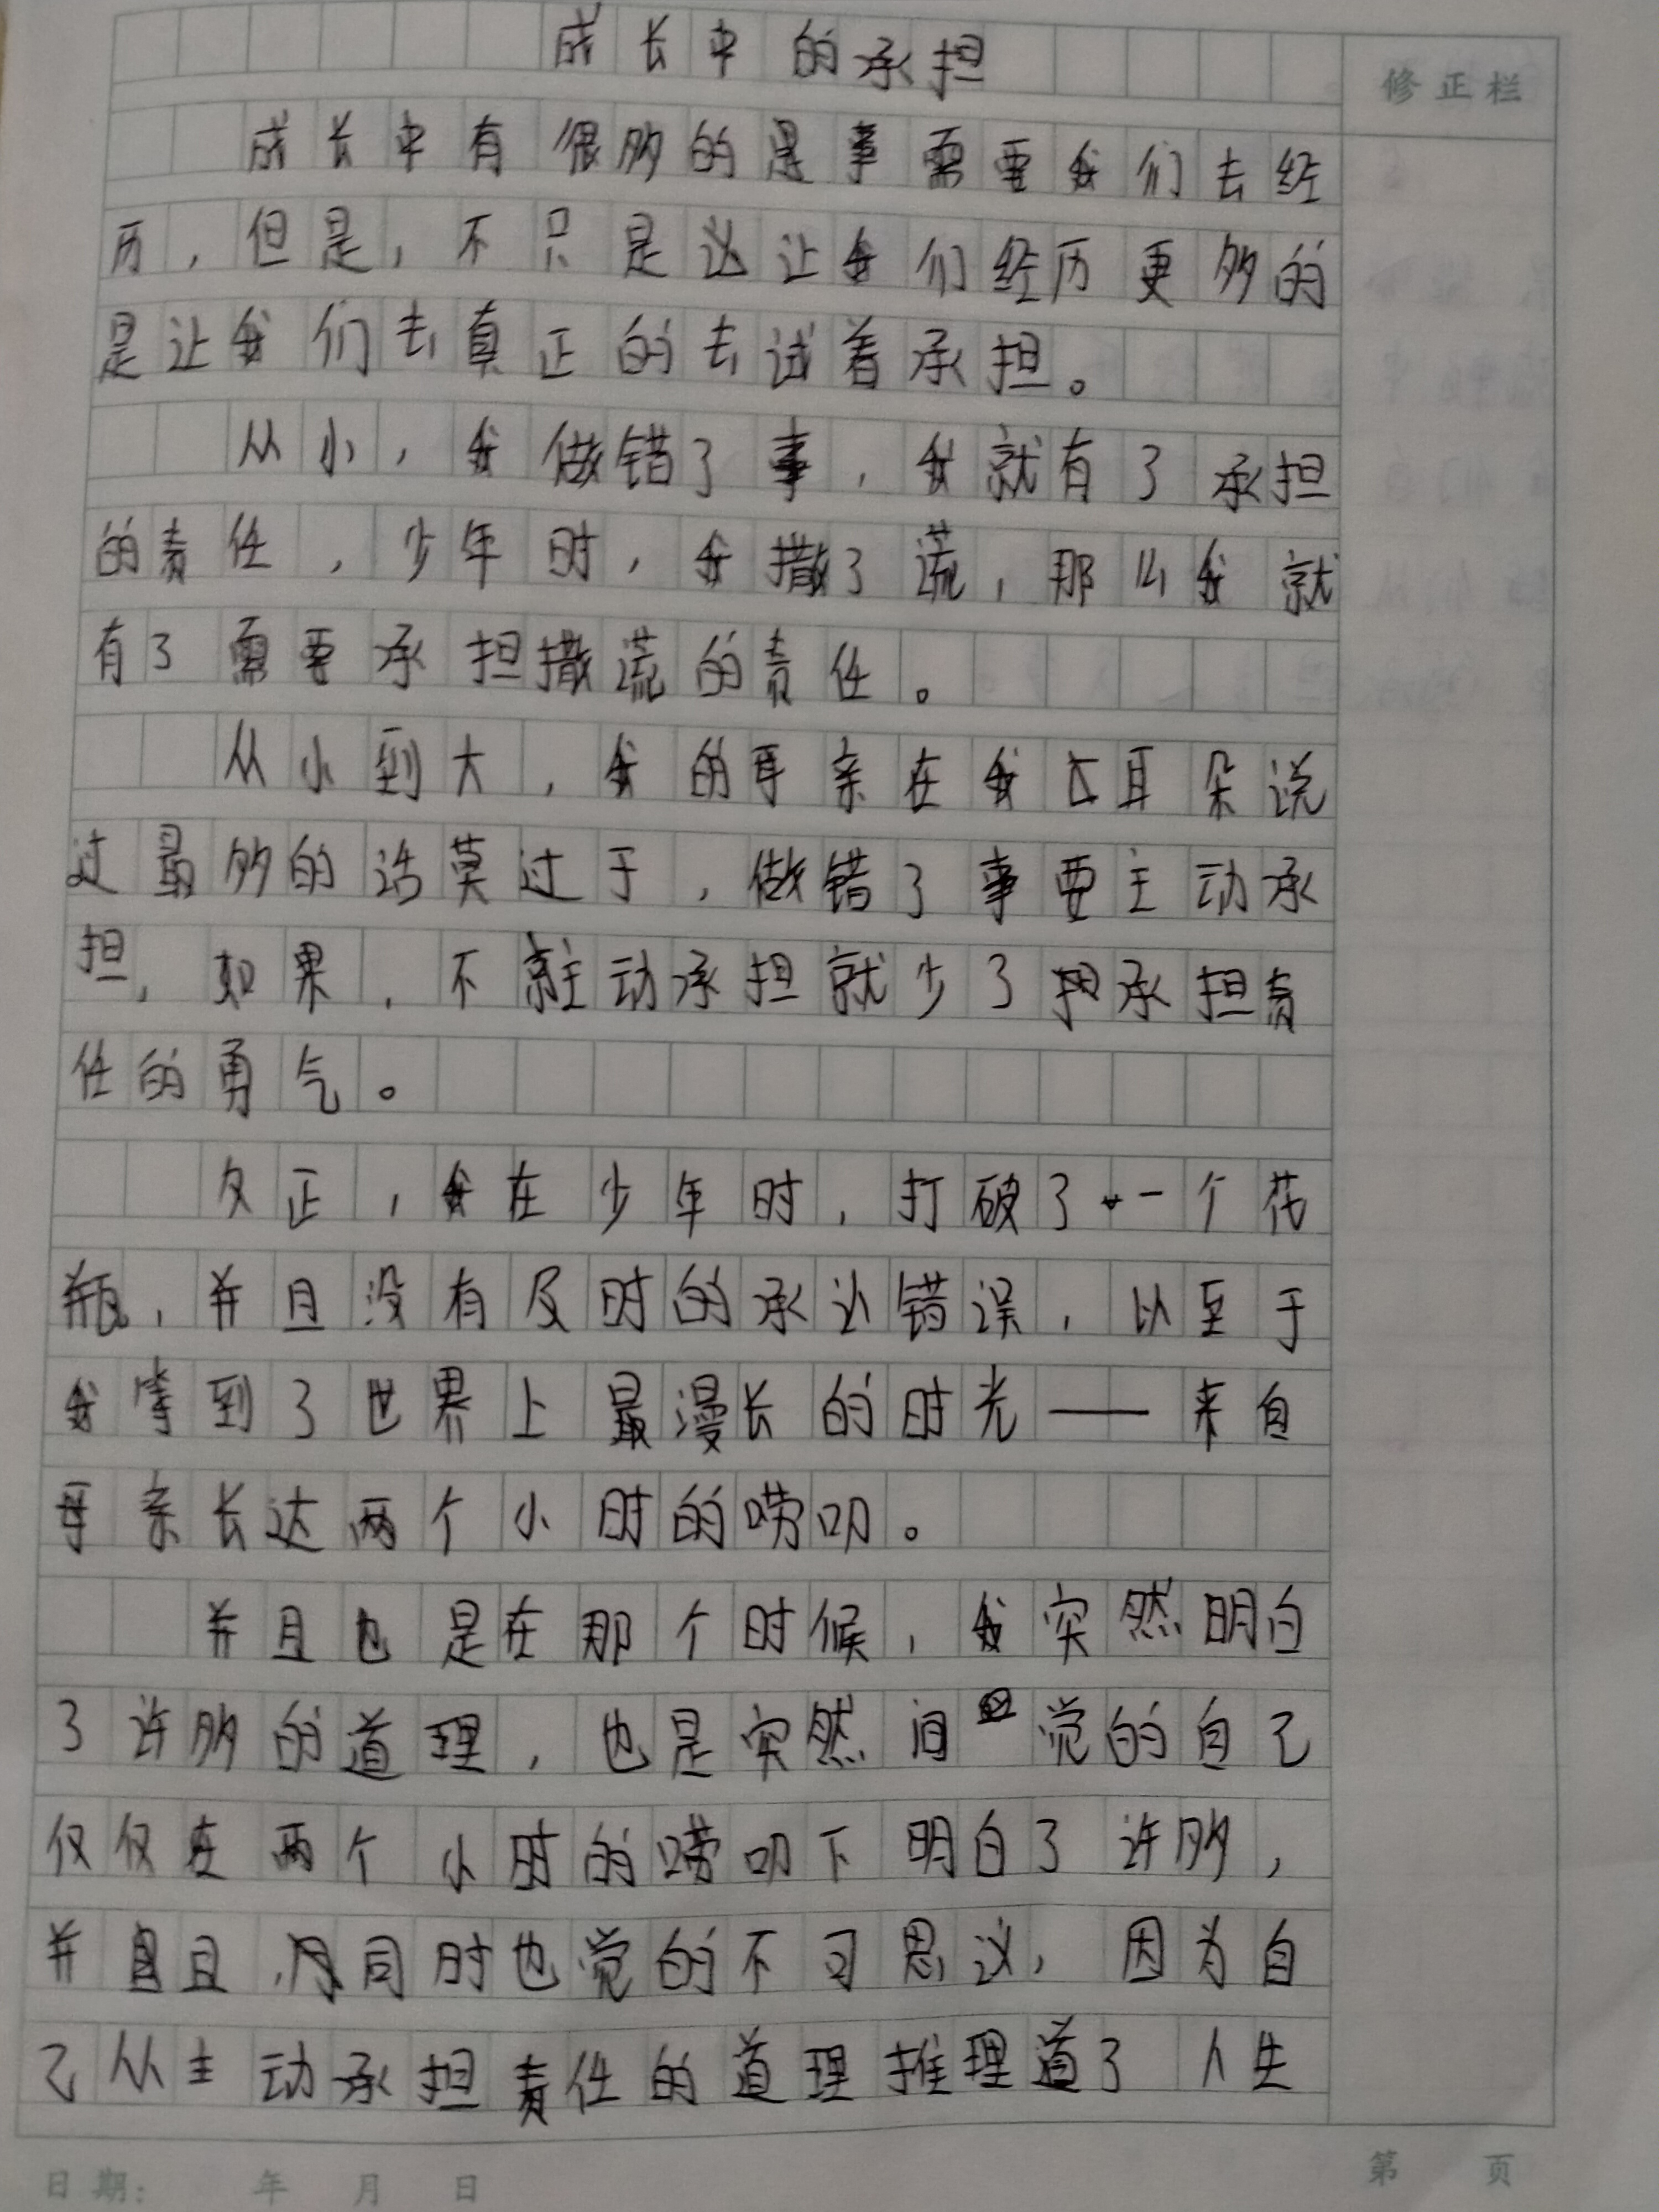 成长中的承担
修正栏
成长中有很多的是事需要我们去经
历，但是，不只是这让我们经历更多的
是让我们去真正的去试着承担。
从小，我做错了事，我就有了承担
的责任，少年时，我撒了谎，那么我就
有了需要承担撒谎的责任。
从小到大，我的母亲在我耳朵说
过最多的话莫过于，做错了事要主动承
担，如果，不主动承担就少了承担责
任的勇气。
反正，我在少年时，打破了一个花
瓶，并且没有及时的承认错误，以至于
我等到了世界上最漫长的时光——来自
母亲长达两个小时的唠叨。
并且也是在那个时候，我突然明白
了许多的道理，也是突然间觉的自己
仅仅在两个小时的唠叨下明白了许多，
并且，同时也觉的不可思议，因为自
己从主动承担责任的道理推理道了人生
日期： 年 月 日
第 页